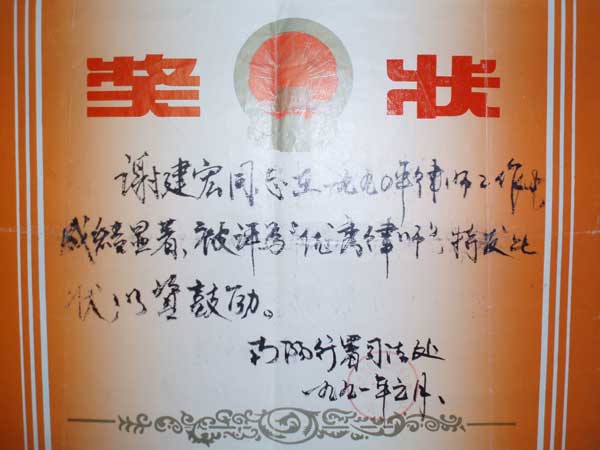 奖状
谢建宏同志在一九九〇年律师工作中
成绩显著，被评为“优秀律师”，特发此
状，以资鼓励。
南阳行署司法处
一九九一年 月